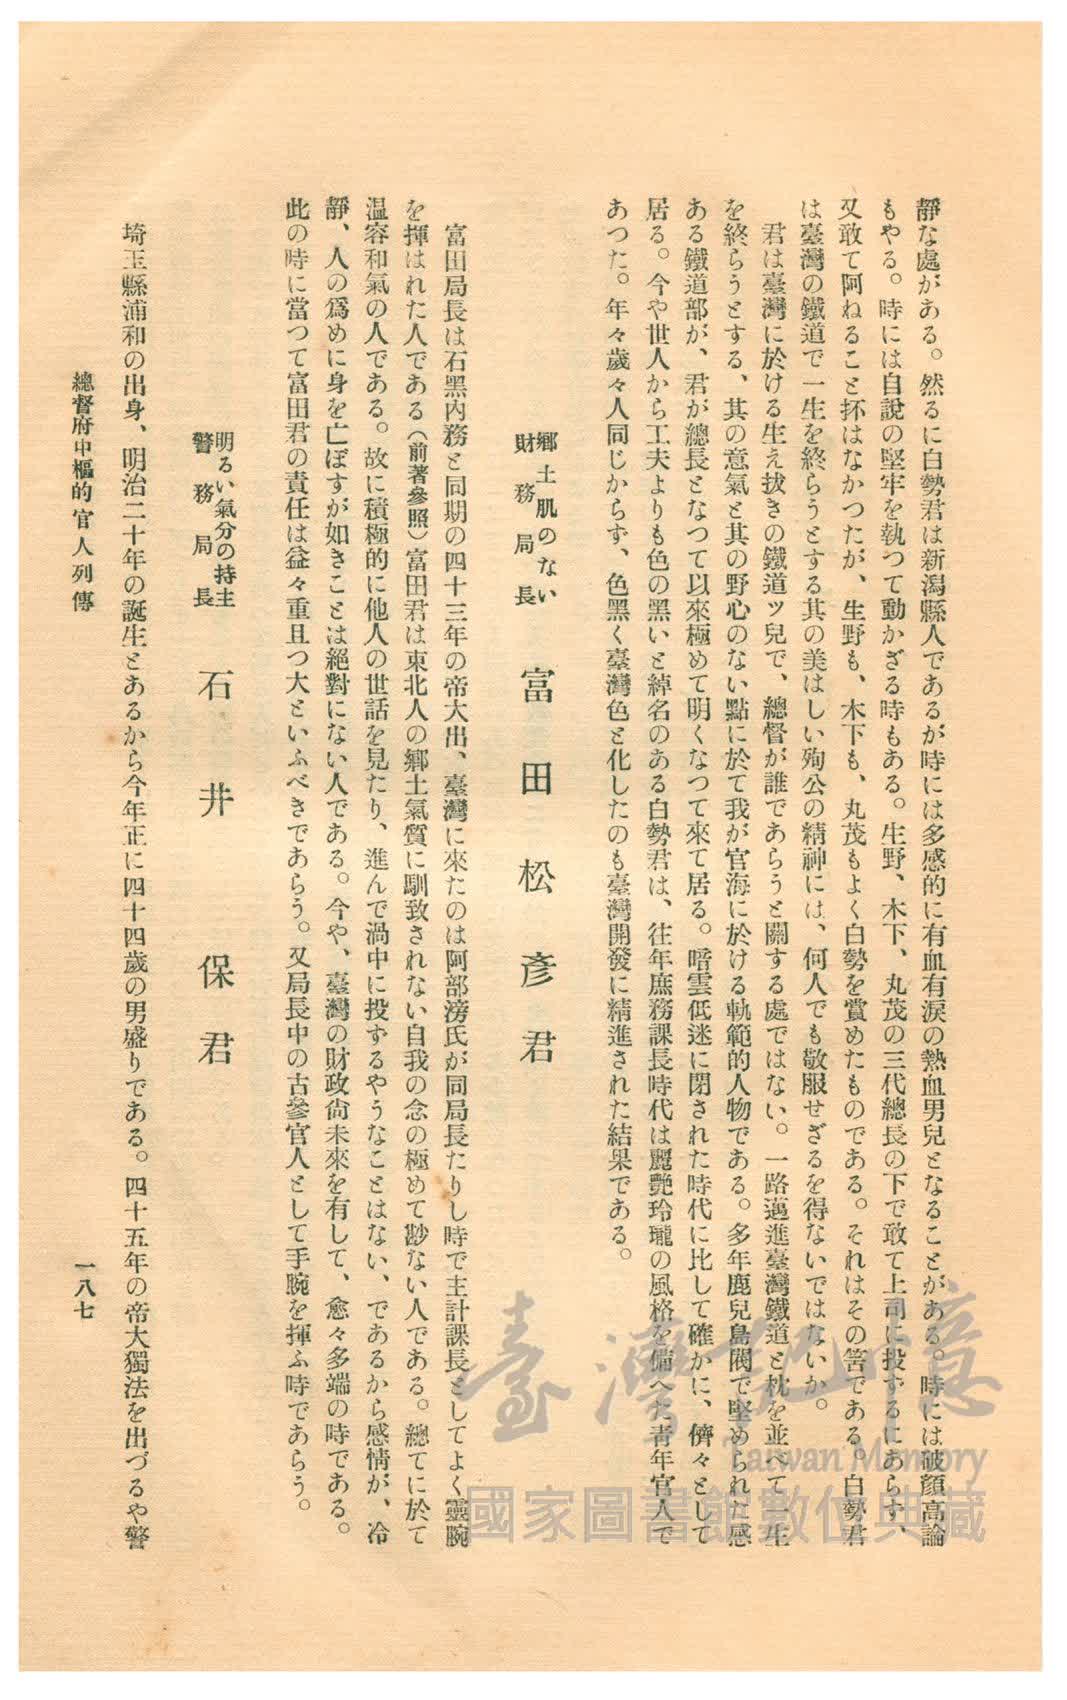 靜な處がある。然るに白勢君は新潟縣人であるが時には多感的に有血有淚の熱血男兒となることがある。時には破顏高論
もやる。時には自說の堅牢を執つて動かざる時もある。生野、木下、丸茂の三代總長の下で敢て上司に投ずるにあらず、
又敢て阿ねること抔はなかつたが、生野も、木下も、丸茂もよく白勢を賞めたものである。それはその筈である。白勢君
は臺灣の鐵道で一生を終らうとする其の美はしい殉公の精神には、何人でも敬服せざるを得ないではないか。
君は臺灣に於ける生え拔きの鐵道ッ兒で、總督が誰であらうと關する處ではない。一路邁進臺灣鐵道と枕を並べて一生
を終らうとする、其の意氣と其の野心のない點に於て我が官海に於ける軌範的人物である。多年鹿兒島閥で堅められた感
ある鐵道部が、君が總長となつて以來極めて明くなつて來て居る。暗雲低迷に閉された時代に比して確かに、儕々として
居る。今や世人から工夫よりも色の黑いと綽名のある白勢君は、往年庶務課長時代は麗艷玲瓏の風格を備へた靑年官人で
あつた。年々歲々人同じからず、色黑く臺灣色と化したのも臺灣開發に精進された結果である。
鄕土肌のない
財務局長
富田松彥君
富田局長は石黑內務と同期の四十三年の帝大出、臺灣に來たのは阿部滂氏が同局長たりし時で主計課長としてよく靈腕
を揮はれた人である(前著參照)富田君は東北人の鄕土氣質に馴致されない自我の念の極めて尠ない人である。總てに於て
溫容和氣の人である。故に積極的に他人の世話を見たり、進んで渦中に投ずるやうなことはない、であるから感情が、冷
靜、人の爲めに身を亡ぼすが如きことは絕對にない人である。今や、臺灣の財政尙未來を有して、愈々多端の時である。
此の時に當つて富田君の責任は益々重且つ大といふべきであらう。又局長中の古參官人として手腕を揮ふ時であらう。
明るい氣分の持主
警務局長
石井保君
埼玉縣浦和の出身、明治二十年の誕生とあるから今年正に四十四歲の男盛りである。四十五年の帝大獨法を出づるや警
總督府中樞的官人列傳
一八七
臺灣記憶
Taiwan Memory
國家圖書館數位典藏